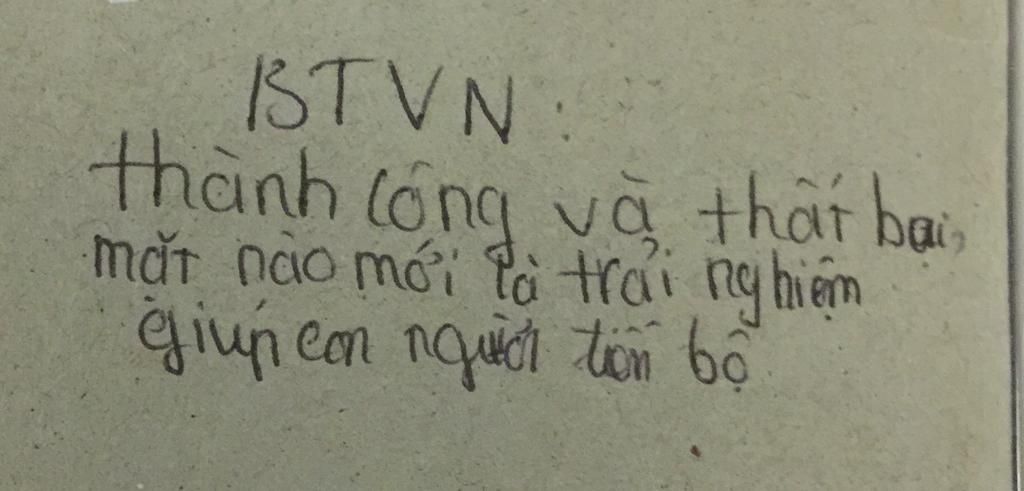 BTVN:
thành công và thất bại,
mặt nào mới là trải nghiệm
giúp con người tiến bộ